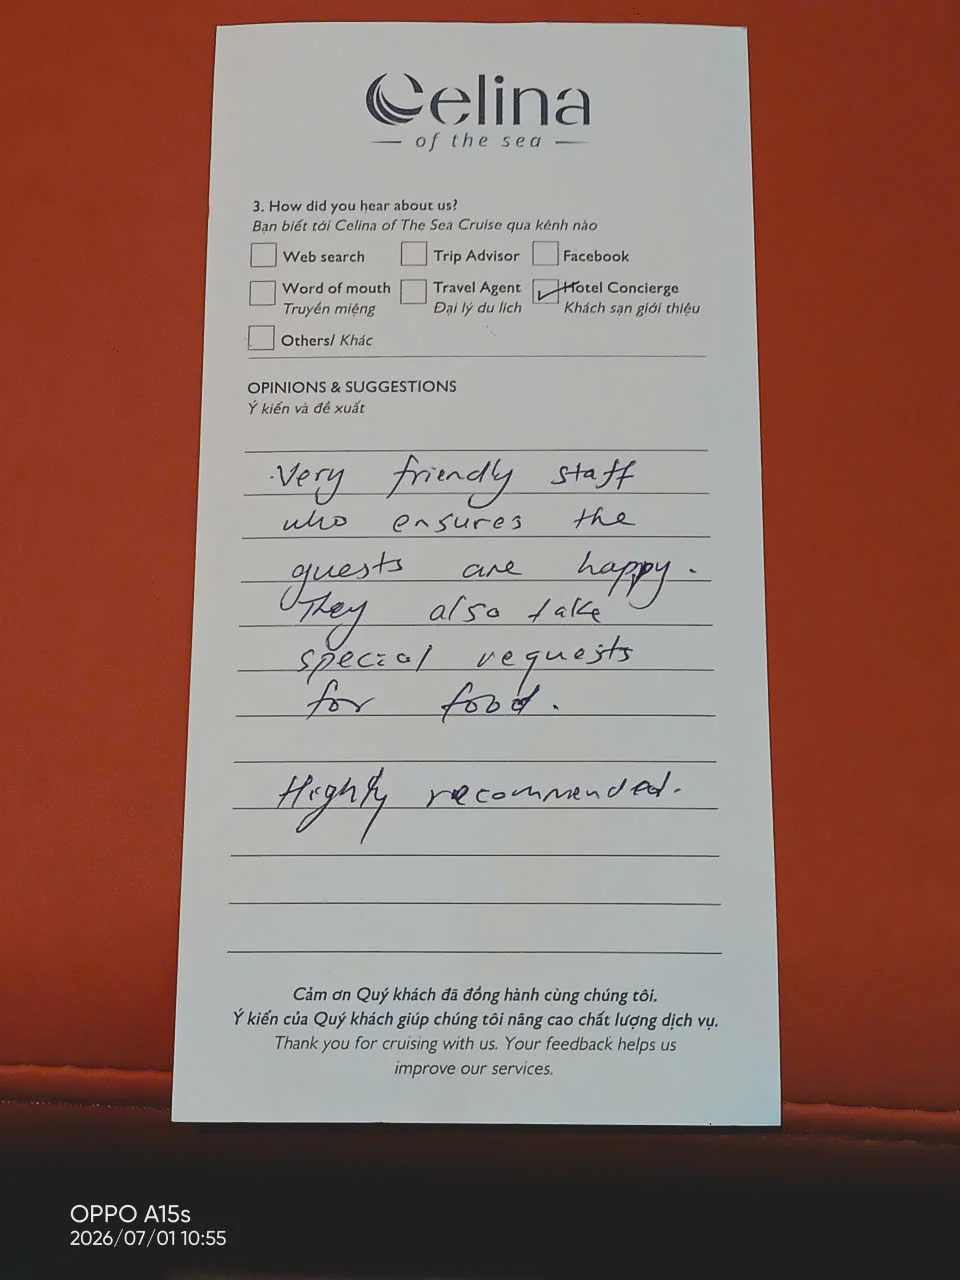 Celina
of the sea
3. How did you hear about us?
Bạn biết tới Celina of The Sea Cruise qua kênh nào
Web search Trip Advisor Facebook
Word of mouth Travel Agent Hotel Concierge
Truyền miệng Đại lý du lich Khách sạn giới thiệu
Others/ Khác
OPINIONS & SUGGESTIONS
Ý kiến và đề xuất
Very friendly staff
who ensures the
guests are happy.
They also take
special requests
for food.
Highly recommended.
Cảm ơn Quý khách đã đồng hành cùng chúng tôi.
Ý kiến của Quý khách giúp chúng tôi nâng cao chất lượng dịch vụ.
Thank you for cruising with us. Your feedback helps us
improve our services.
OPPO A15s
2026/07/01 10:55